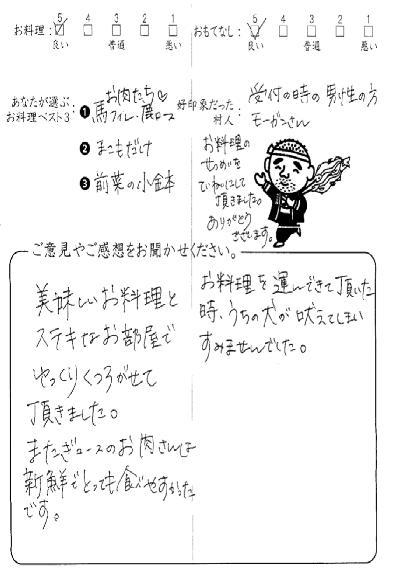 お料理： 5 4 3 2 1
良い 普通 悪い
おもてなし： 5 4 3 2 1
良い 普通 悪い
あなたが選ぶ
お料理ベスト3：
お肉たち♡
❶ 馬フィレ・鹿ロース
❷ まこもだけ
❸ 前菜の小鉢
好印象だった
村人：
受付の時の男性の方
モーガンさん
お料理の
せつめいを
ていねいにして
頂きました。
ありがとう
ございます。
ご意見やご感想をお聞かせください。
美味しいお料理と
ステキなお部屋で
ゆっくりくつろがせて
頂きました。
またぎコースのお肉さんは
新鮮でとっても食べやすかった
です。
お料理を運んできて頂いた
時、うちの犬が吠えてしまい
すみませんでした。